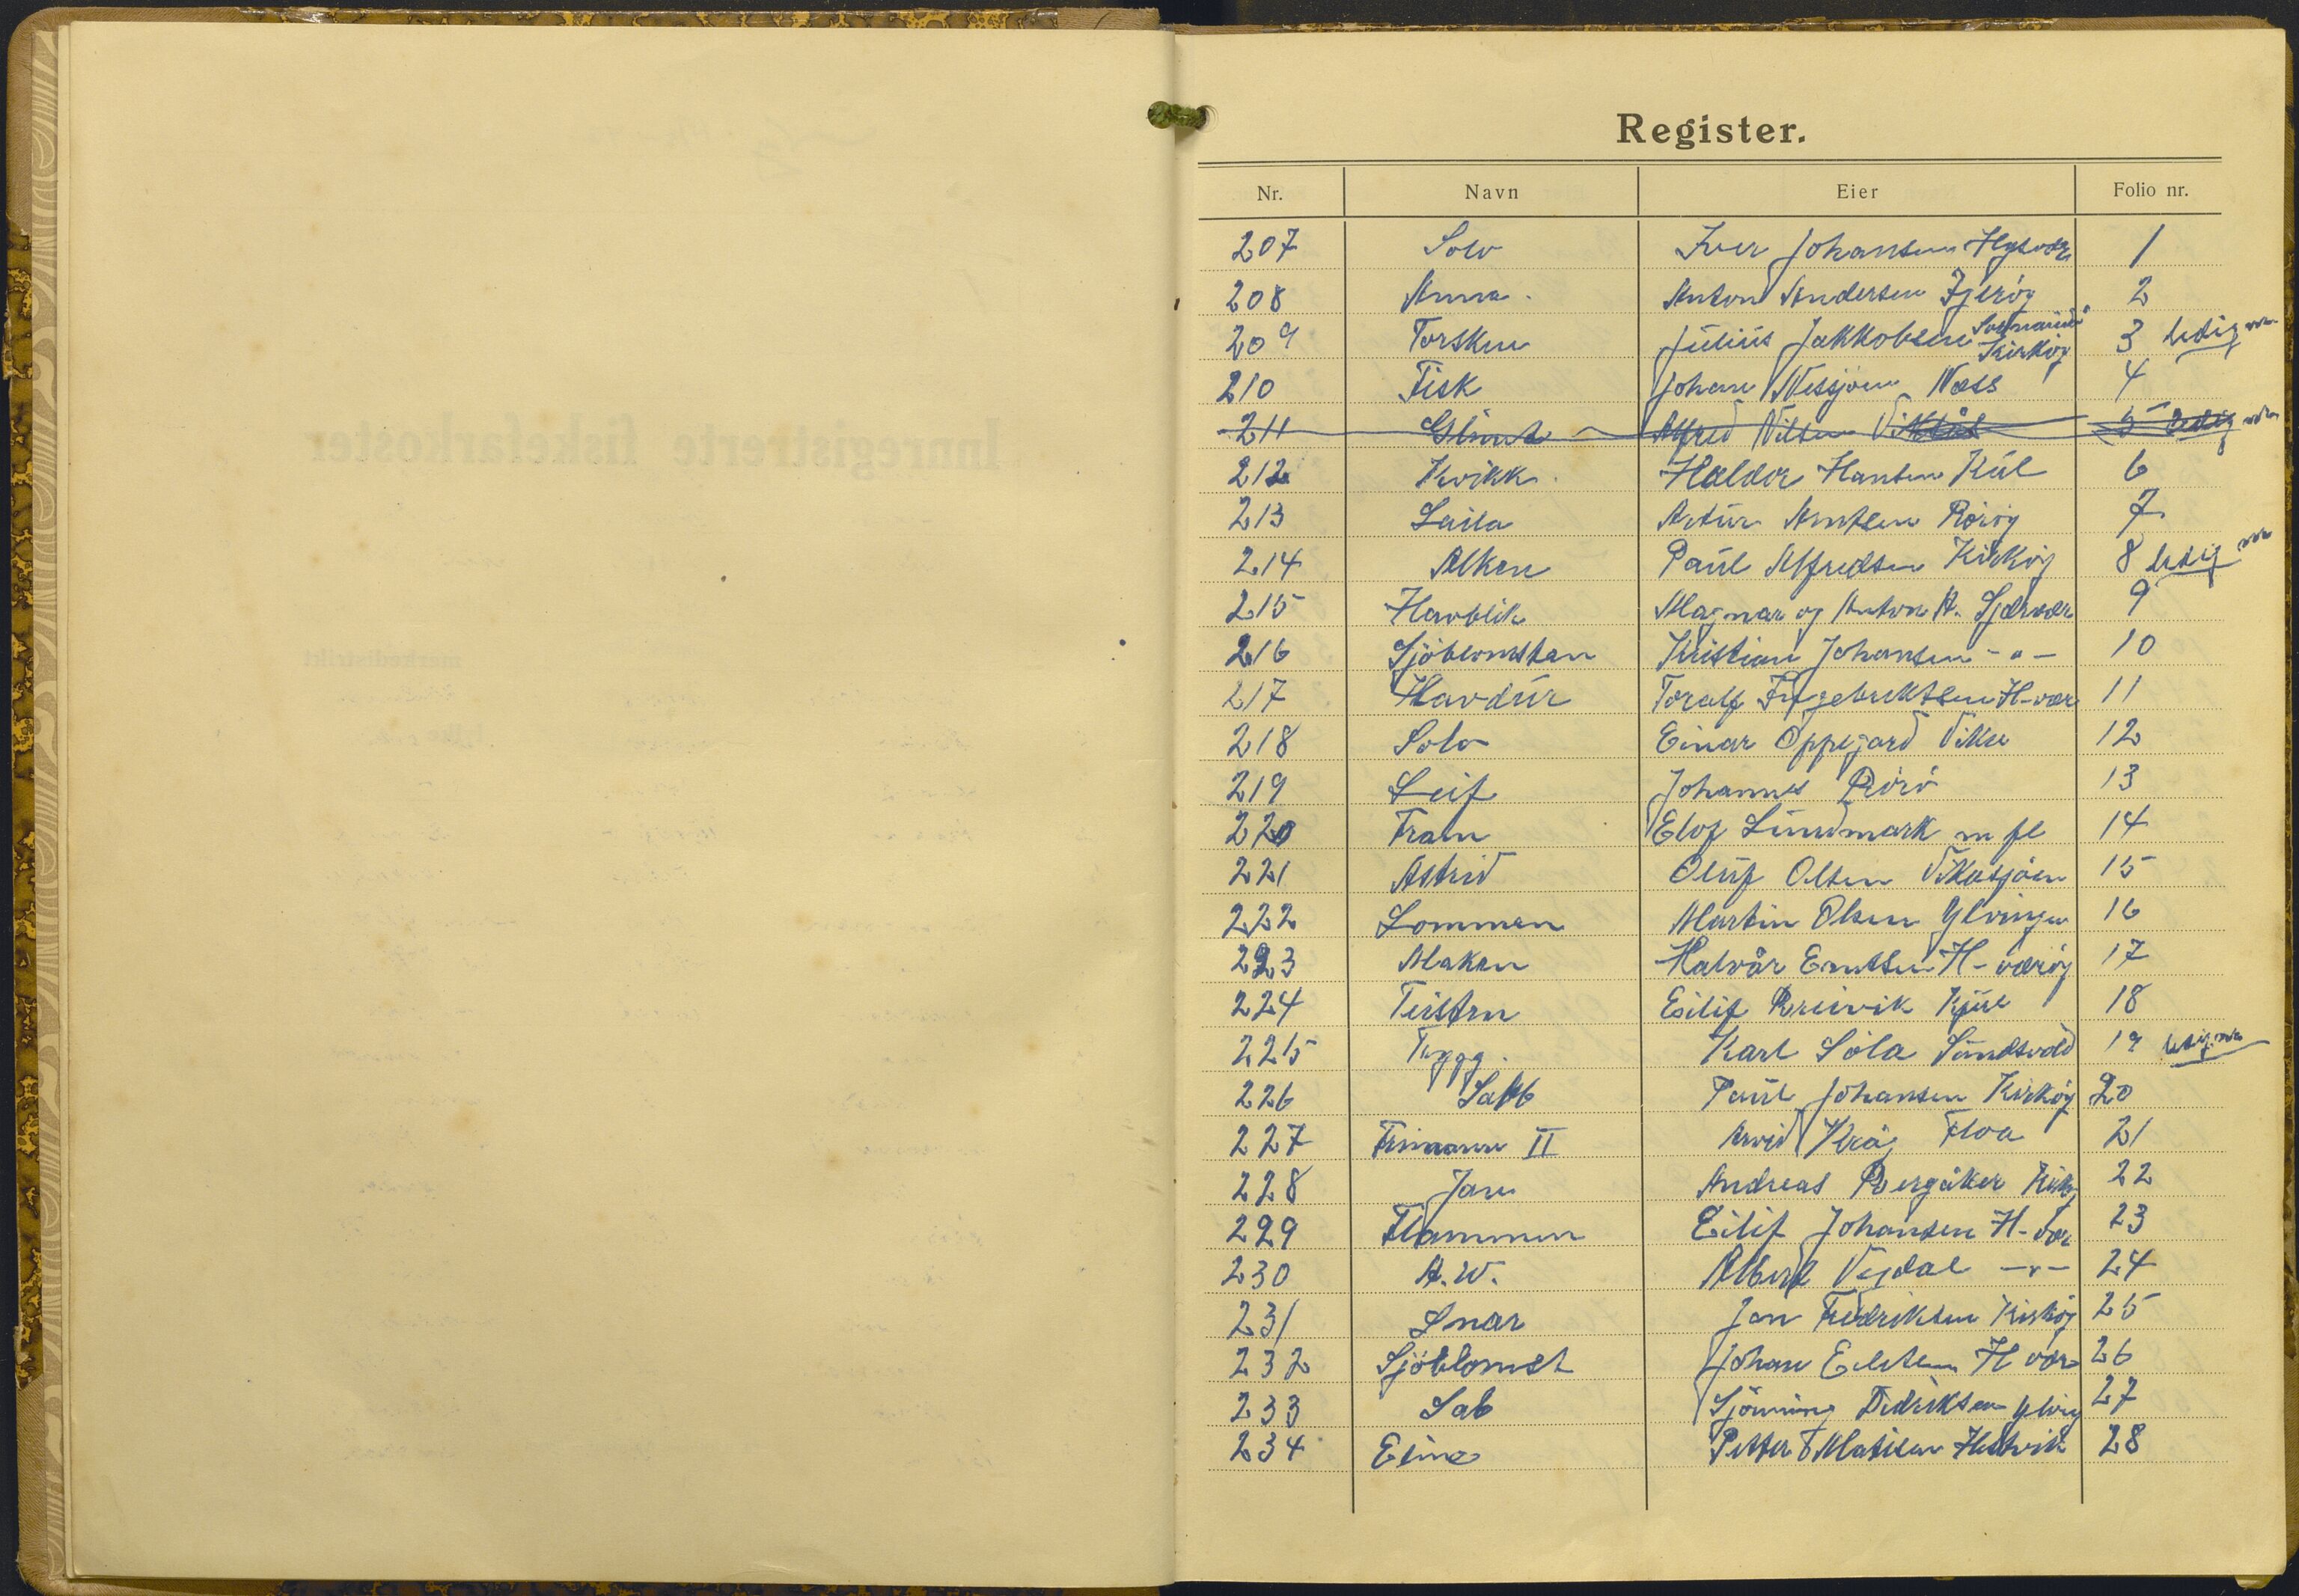 Register.
Nr. Navn Eier Folio nr.
207 Solo Iver Johansen 1
208 Anna. Anton Andersen 2
209 Torsken Julius Jakkobsen Kirköy 3 ledig
210 Fisk Johan Nessjöen Næss 4
211 Glimt Alfred Nilsen 5 ledig
212 Kvikk. Haldor Hansen Kul 6
213 Laila Artur Arntsen Röröy 7
214 Alken Paul Alfredsen Kirköy 8 ledig
215 Havblik Magnar og Anton A. 9
216 Sjöblomsten Kristian Johansen - " - 10
217 Havdur Toralf Ingebriktsen H-vær 11
218 Solo Einar Oppegård 12
219 Leif Johannes Rörö 13
220 Fram Elof Lundmark m fl 14
221 Astrid Oluf Olsen Vikasjöen 15
222 Lommen Martin Olsen Ylvingen 16
223 Maken Halvår Erntsen H-væröy 17
224 Teisten Eilif Breivik 18
225 Trygg. Karl Sola Sundsvold 19 ledig
226 Sabb Paul Johansen Kirköy 20
227 Frimann II Arvid Floa 21
228 Jan Andreas Bergåker Kirk 22
229 Flammen Eilif Johansen H-vær 23
230 A.W. Albert Vegdal - " - 24
231 Snar Jon Fredriksen Kirköy 25
232 Sjöblomst Johan Edvtsen H vær 26
233 Sab Fredriksen Ylving 27
234 Petter Matisen Hestvik 28